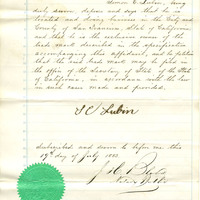 Simon C. Lubin, being
duly sworn, deposes and says that he is
located and doing business in the City and
County of San Francisco, State of California
and that he is the exclusive owner of the
trade mark described in the specification
accompanying this affidavit, and he petitions
that the said trade mark may be filed in
the office of the Secretary of State of the State
of California, in accordance with the law
in such cases made and provided.
S C Lubin
Subscribed and sworn to before me this
19th day of July 1883